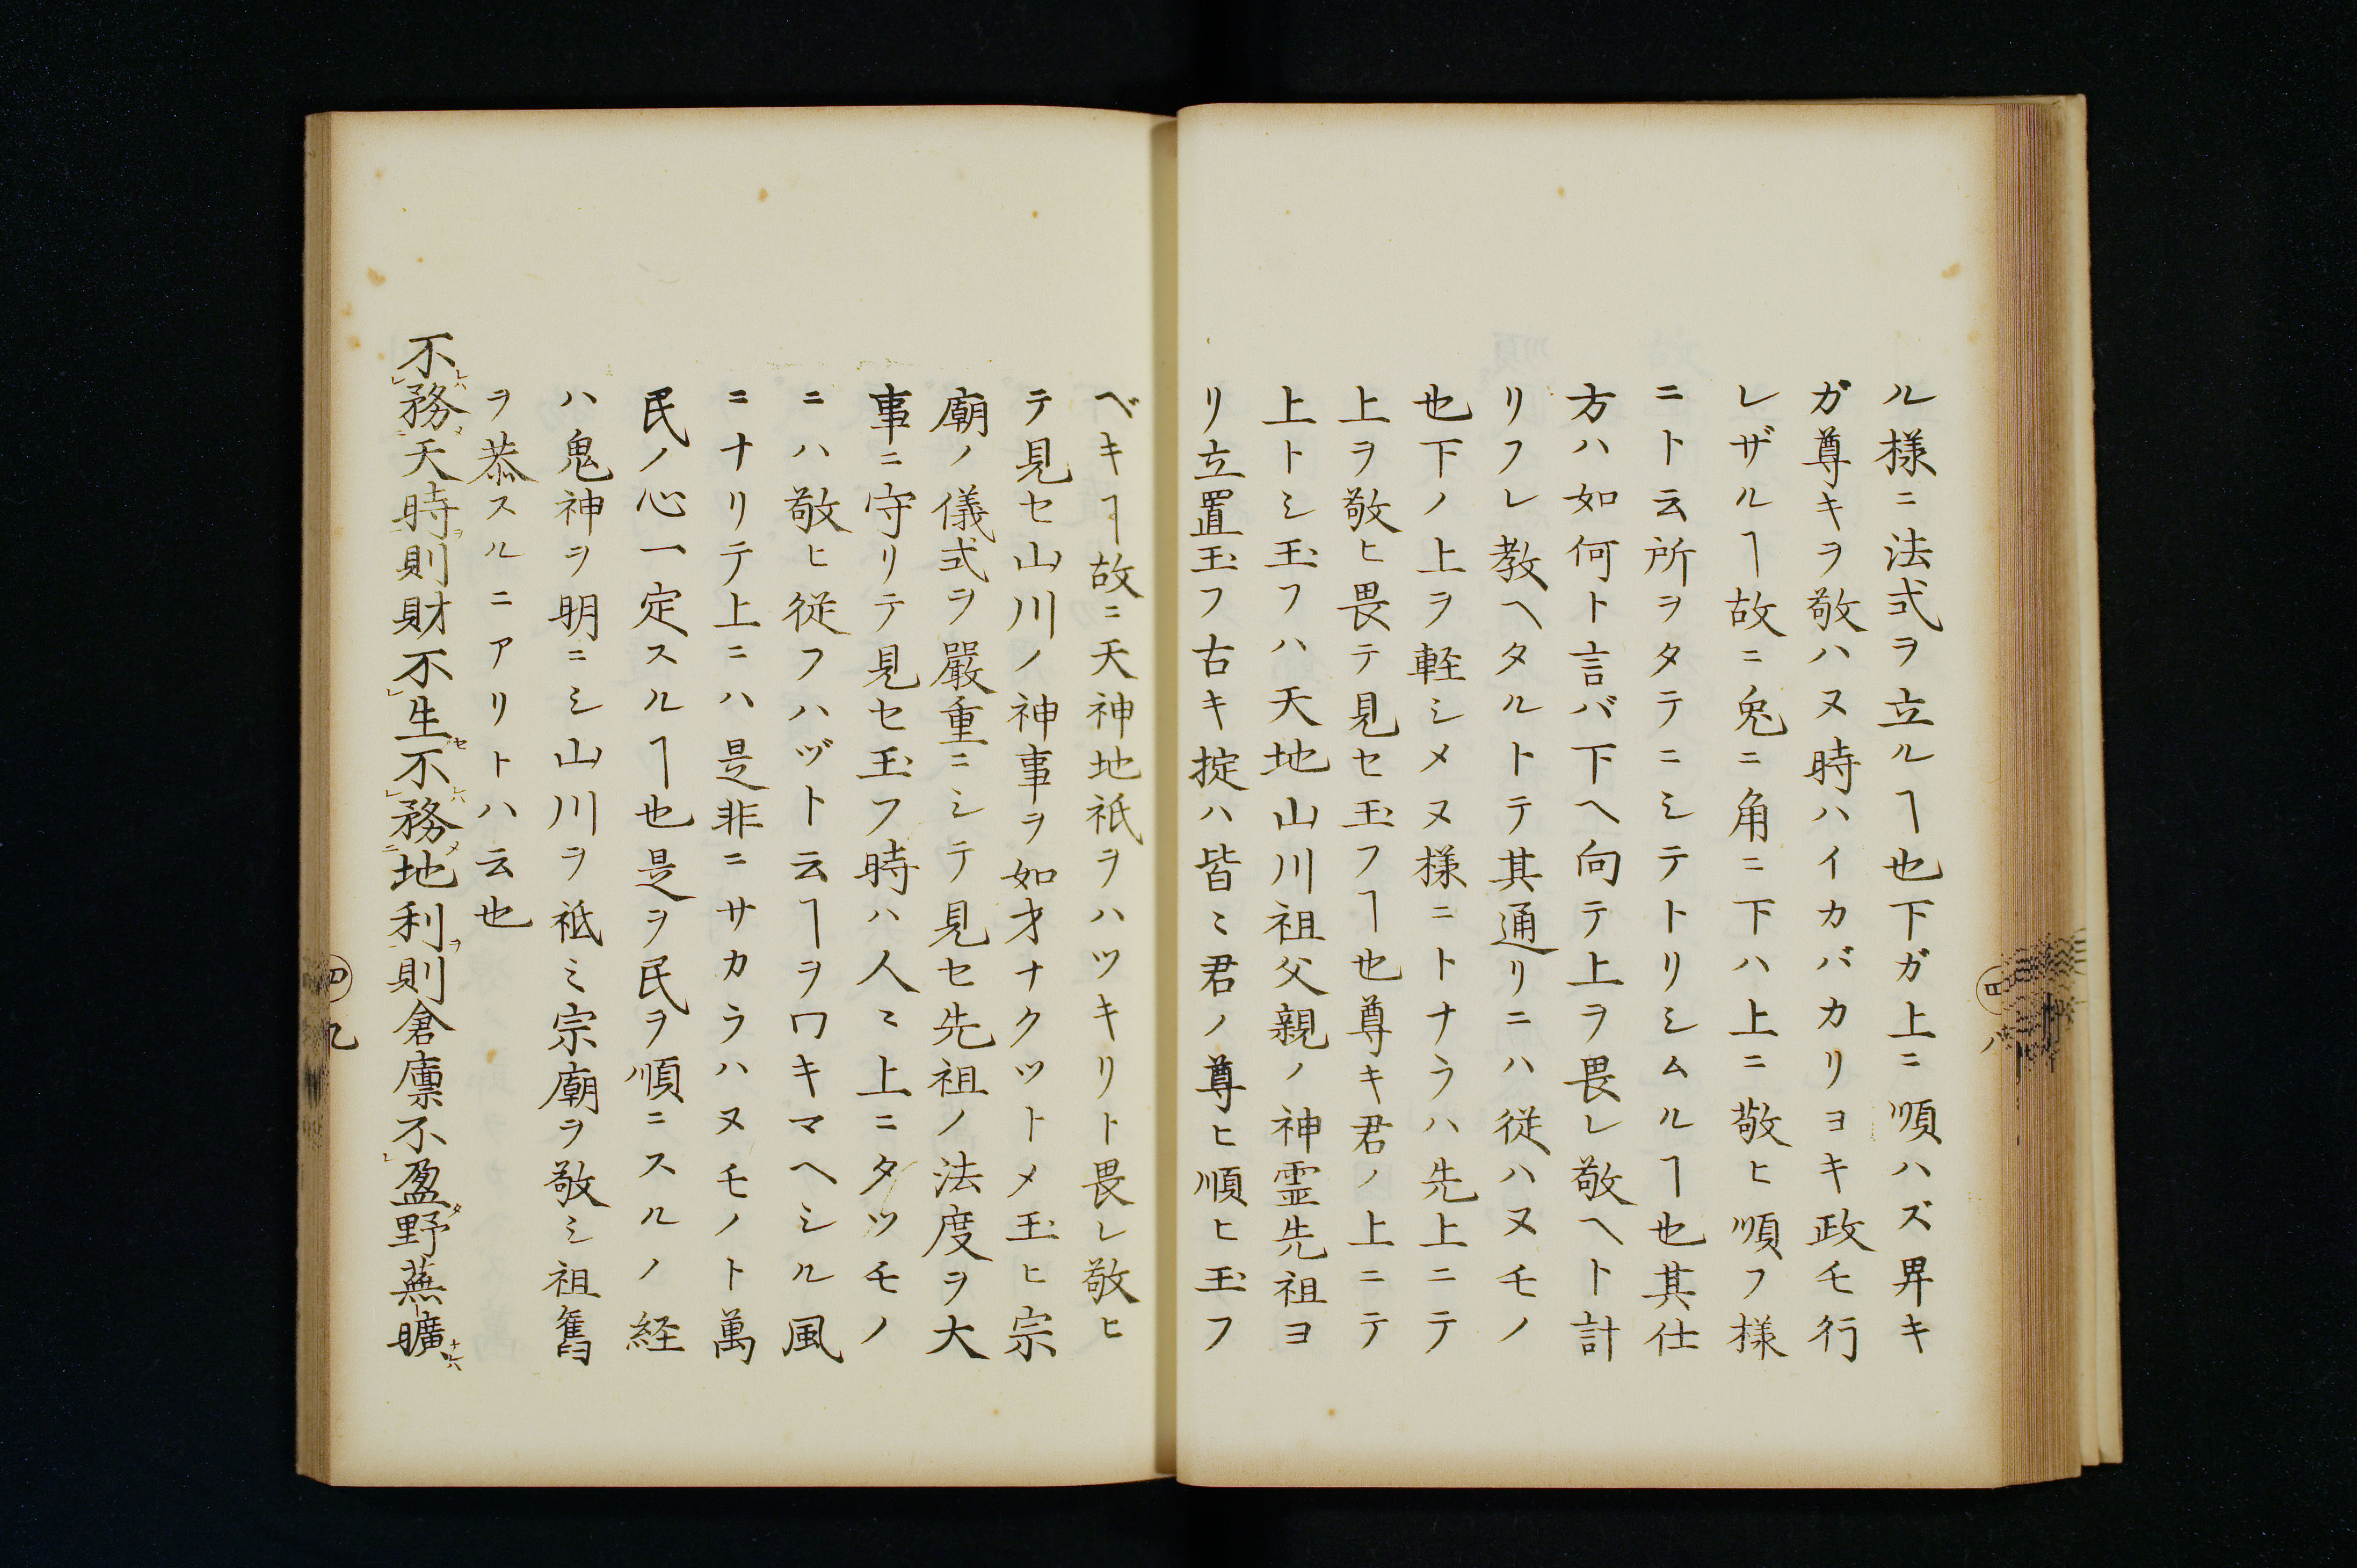 ル様ニ法式ヲ立ルヿ也下ガ上ニ順ハズ畀キ
ガ尊キヲ敬ハヌ時ハイカバカリヨキ政モ行
レザルヿ故ニ兎ニ角ニ下ハ上ニ敬ヒ順フ様
ニト云所ヲタテニシテトリシムルヿ也其仕
方ハ如何ト言バ下ヘ向テ上ヲ畏レ敬ヘト計
リフレ教ヘタルトテ其通リニハ従ハヌモノ
也下ノ上ヲ軽シメヌ様ニトナラハ先上ニテ
上ヲ敬ヒ畏テ見セ玉フヿ也尊キ君ノ上ニテ
上トシ玉フハ天地山川祖父親ノ神霊先祖ヨ
リ立置玉フ古キ掟ハ皆〻君ノ尊ヒ順ヒ玉フ
㊃八
ベキヿ故ニ天神地祇ヲハツキリト畏レ敬ヒ
テ見セ山川ノ神事ヲ如才ナクツトメ玉ヒ宗
廟ノ儀式ヲ嚴重ニシテ見セ先祖ノ法度ヲ大
事ニ守リテ見セ玉フ時ハ人〻上ニタツモノ
ニハ敬ヒ従フハヅト云ヿヲワキマヘシル風
ニナリテ上ニハ是非ニサカラハヌモノト萬
民ノ心一定スルヿ也是ヲ民ヲ順ニスルノ経
ハ鬼神ヲ明ニシ山川ヲ祗ミ宗廟ヲ敬シ祖舊
ヲ恭スルニアリトハ云也
不務天時則財不生不務地利則倉廩不盈野蕪曠
㊃九